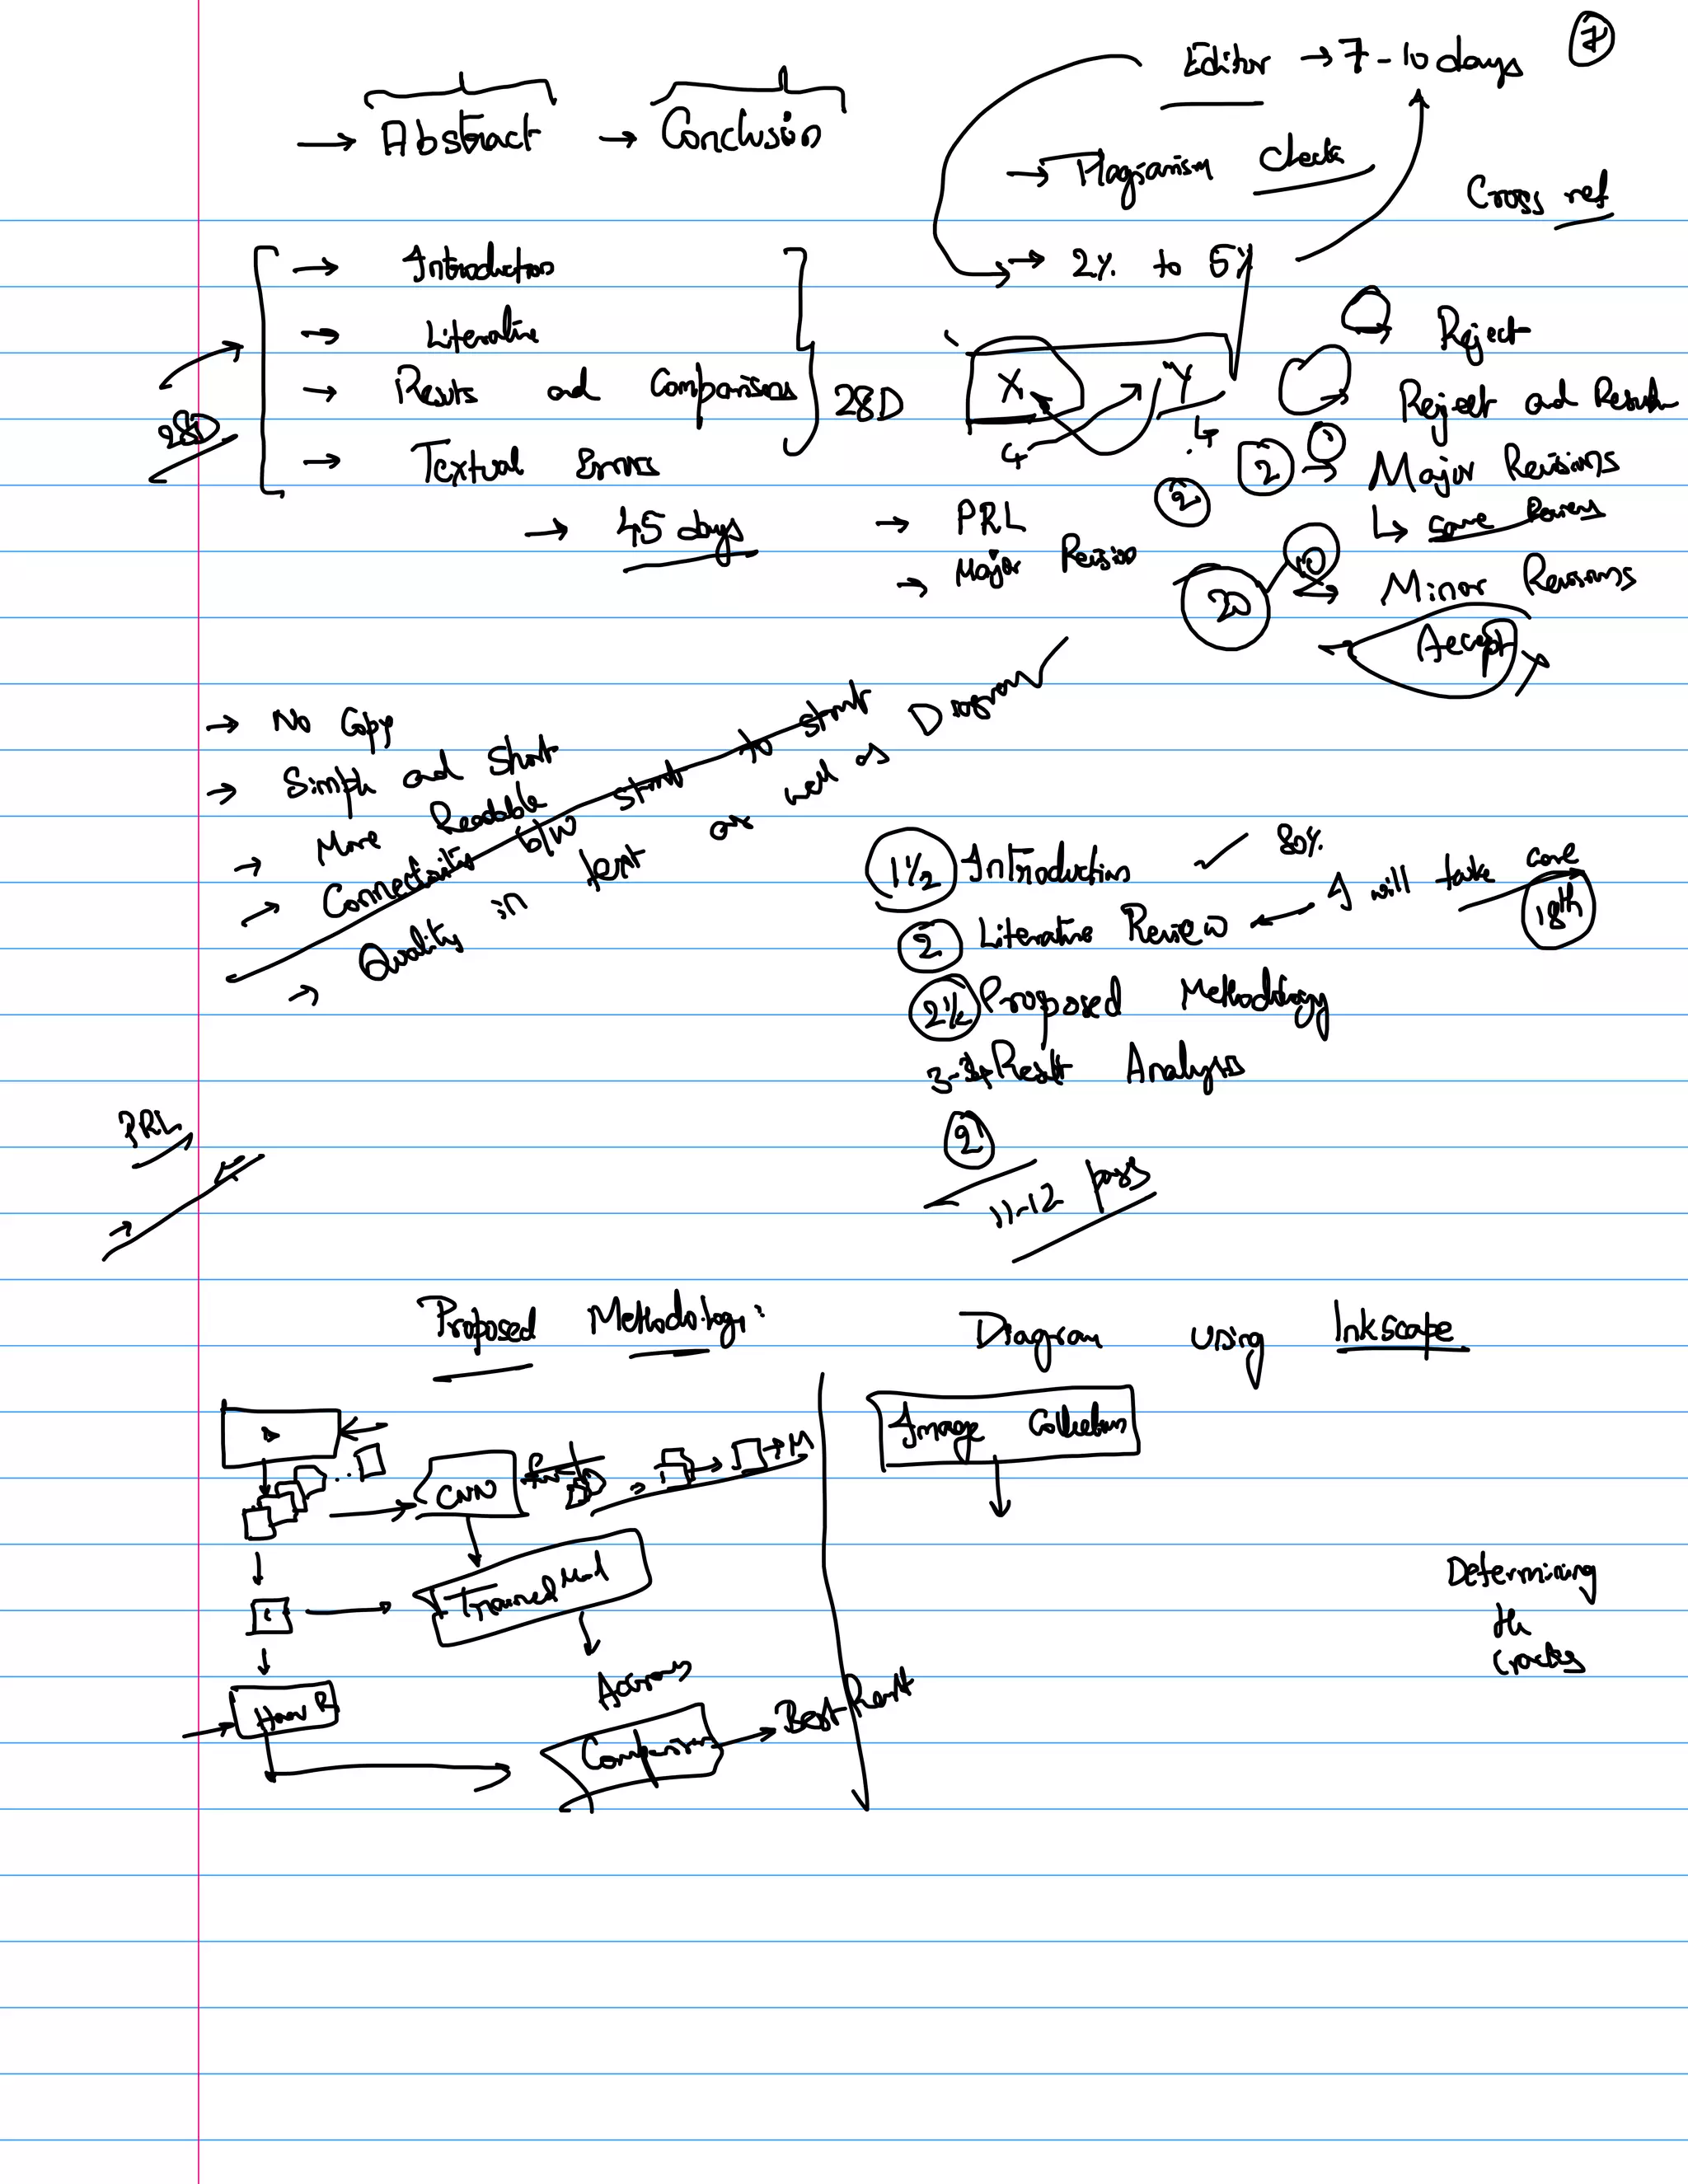 7
Editor → 7-10 days
→ Abstract → Conclusion
→ Plagiarism check
Cross ref
→ Introduction
→ 2% to 5%
→ Literature
Reject
→ Results and Comparisons 28D
X Y
Reject and Resub
28D
4 4
→ Textual Errors
2 → Major Revisions
→ 45 days
→ PRL
2
↳ same
→ Major Revision
20
10
Minor Revisions
Accept
→ No Copy
→ Simple and Short
→ More Readable
→ Connectivity b/w stmt to stmt
→ Quality in text as well as Diagram
1 1/2 Introduction 80%
2 Literature Review ← I will take care
18th
2 1/2 Proposed Methodology
3-34 Result Analysis
PRL
9
11-12 pages
Proposed Methodology:
Diagram using Inkscape
Image Collection
CNN
→ M
Trained
Determining
the
cracks
Best Result
Comparison